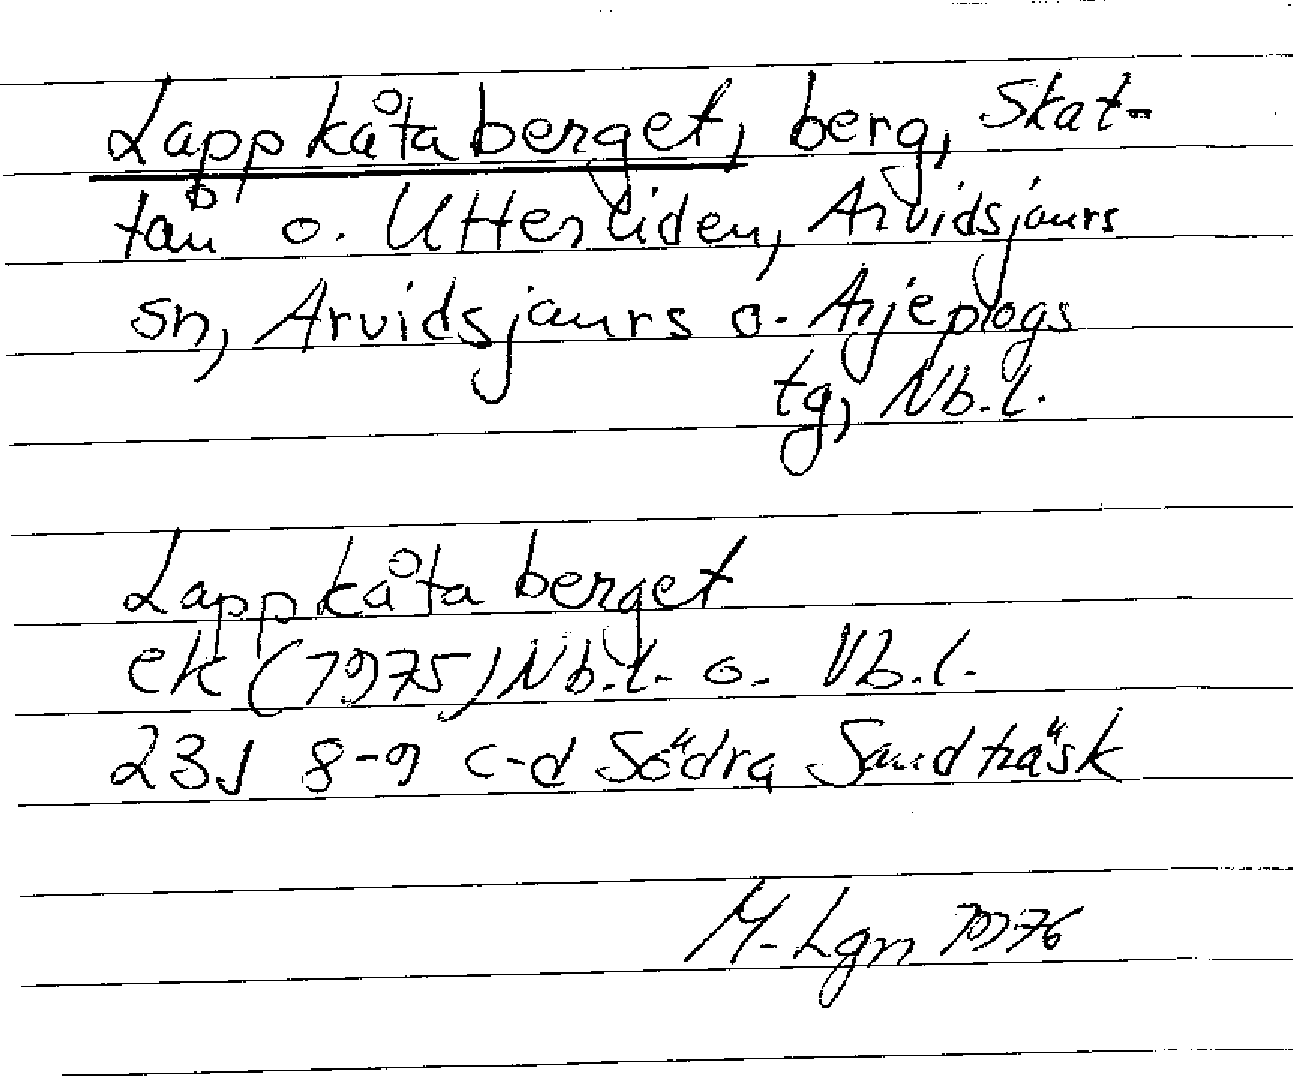 Lappkåtaberget, berg, Skat-
tån o. Utterliden, Arvidsjaurs
sn, Arvidsjaurs o. Arjeplogs
tg, Nb.l.
Lappkåtaberget
ek (1975) Nb.l. o. Vb.l.
23J 8-9 c-d Södra Sandträsk
M-Lgn 1976